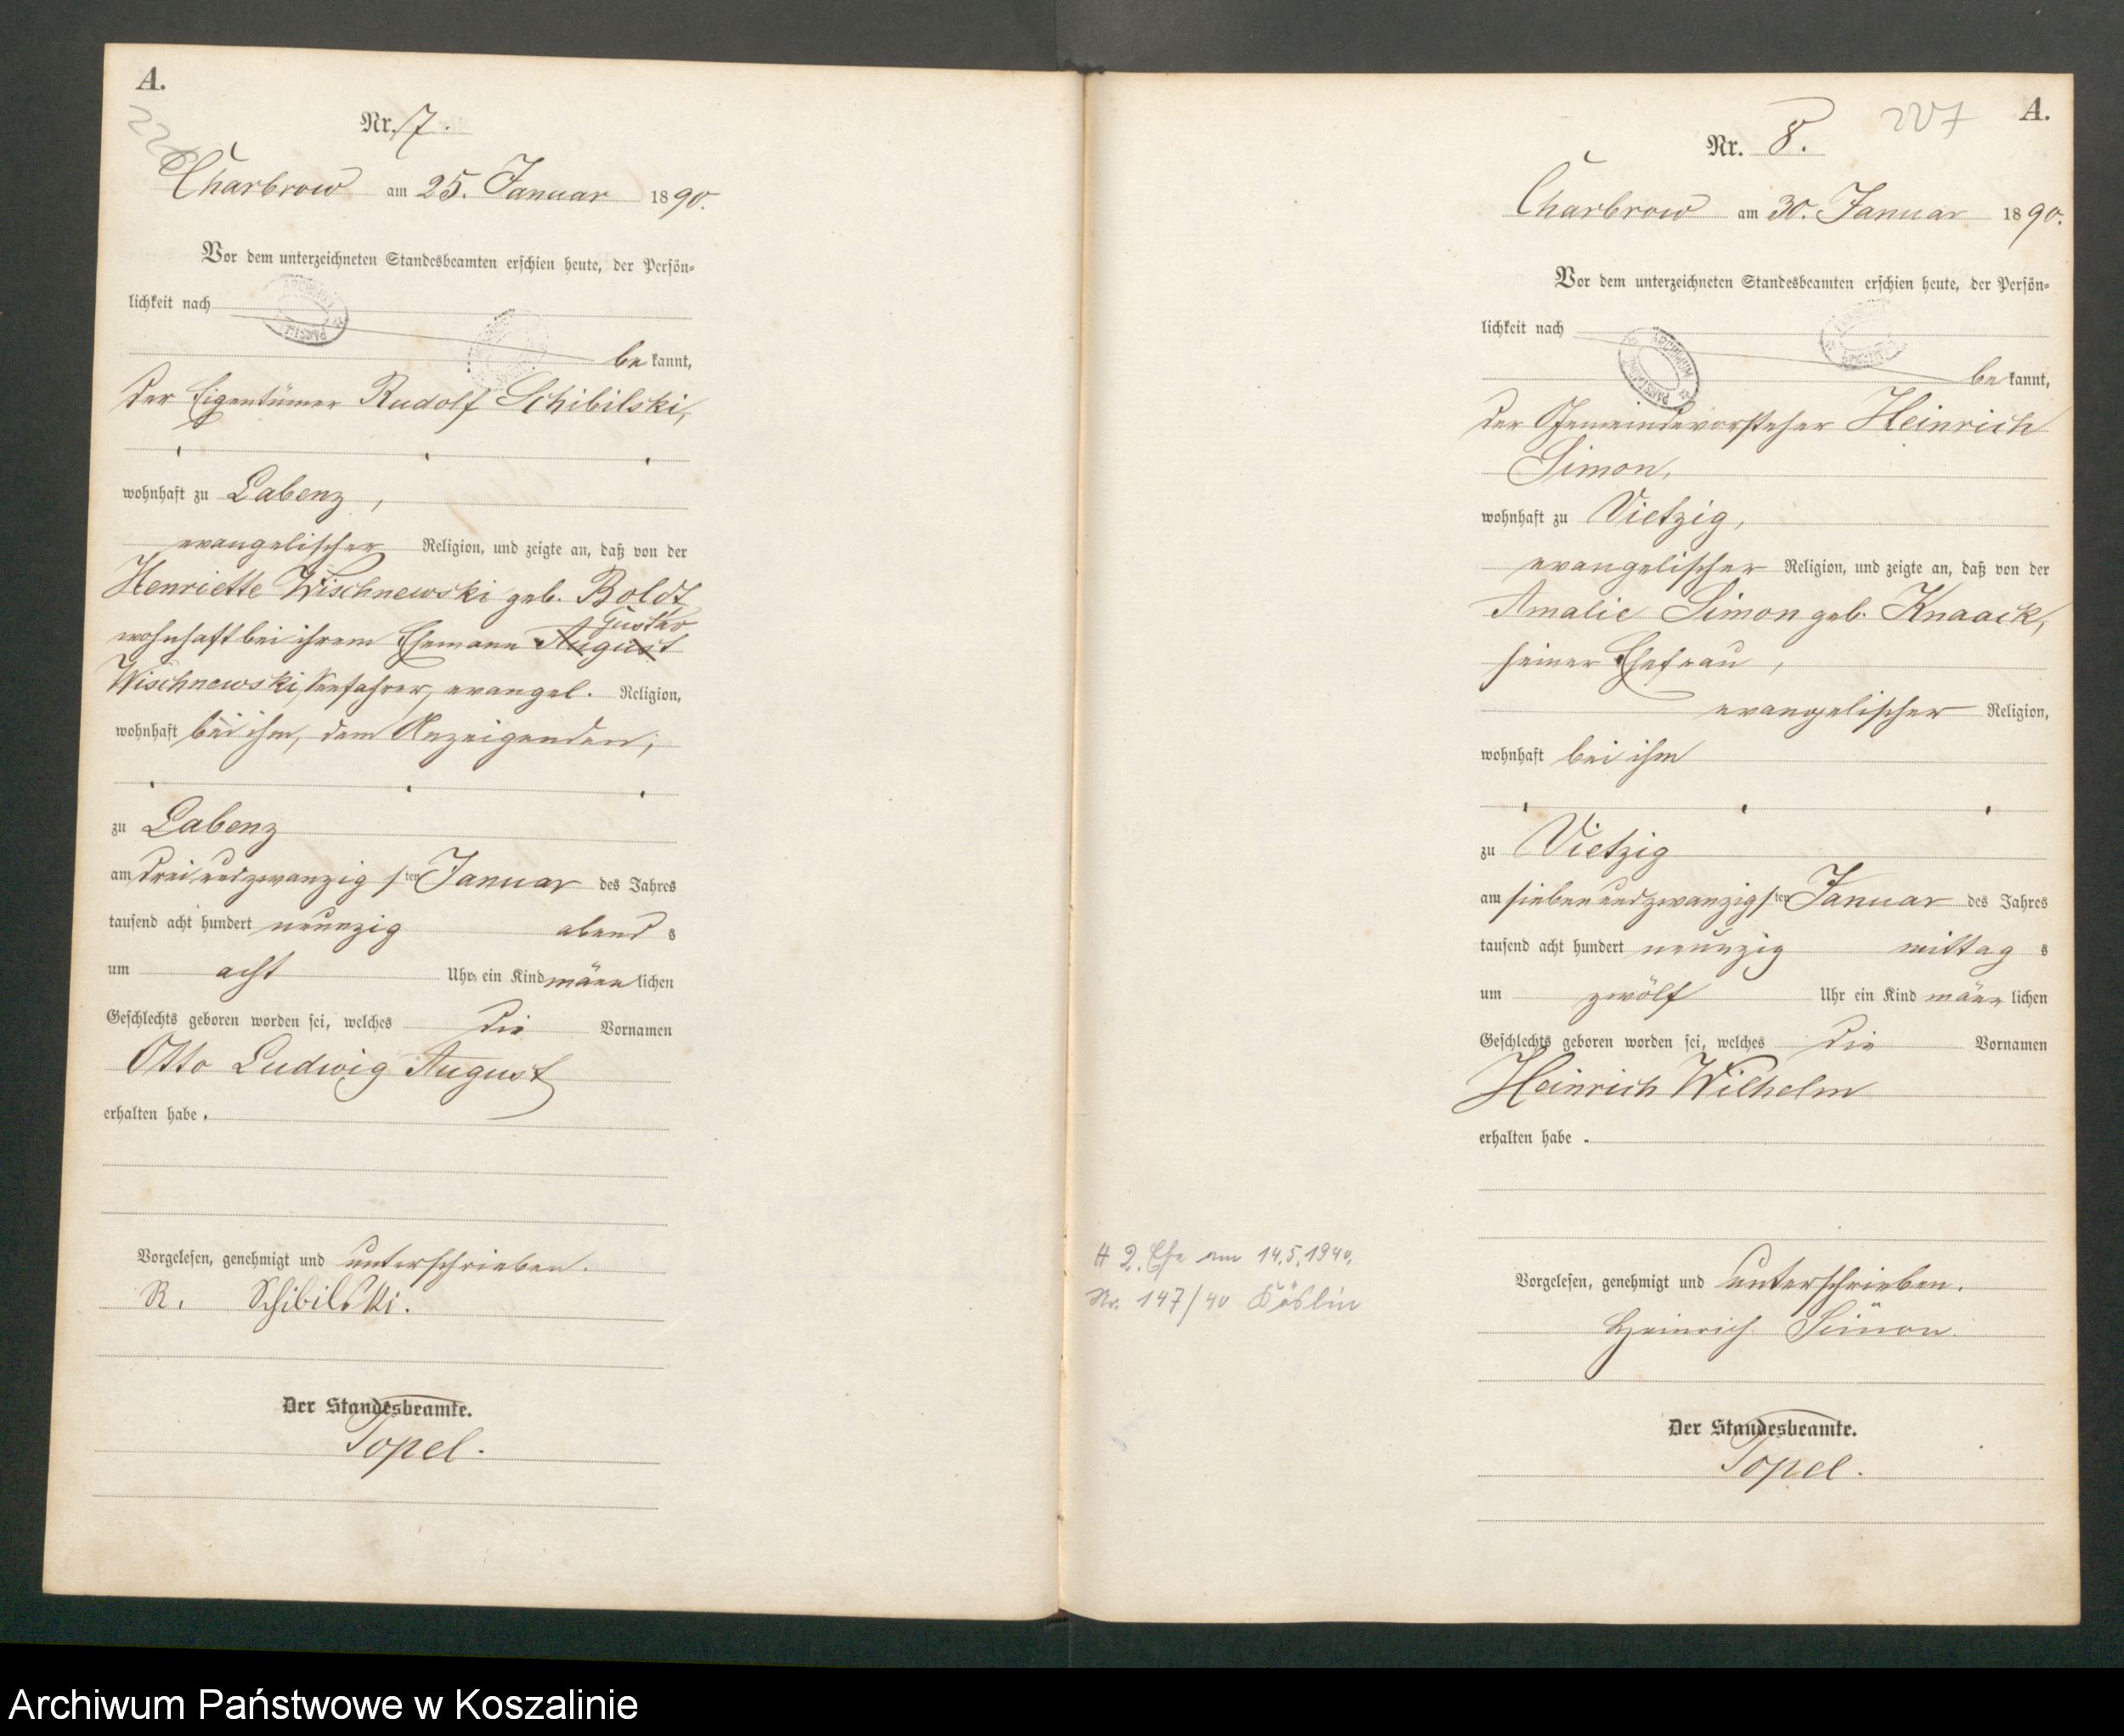 A.
Nr. 7.
Charbrow am 25. Januar 1890.
Vor dem unterzeichneten Standesbeamten erschien heute, der Persön-
lichkeit nach
be kannt,
der Eigentümer Rudolf Schibilski,
wohnhaft zu Labenz,
evangelischer Religion, und zeigte an, daß von der
Henriette Wischnewski geb. Boldt
Gustav
wohnhaft bei ihrem Ehemann August
Wischnewski, Seefahrer, evangel. Religion,
wohnhaft bei ihm, dem Anzeigenden,
zu Labenz
am dreiundzwanzigsten Januar des Jahres
tausend acht hundert neunzig abends
um acht Uhr ein Kind männlichen
Geschlechts geboren worden sei, welches die Vornamen
Otto Ludwig August
erhalten habe.
Vorgelesen, genehmigt und unterschrieben.
R. Schibilski.
Der Standesbeamte.
Topel.
227 A.
Nr. 8.
Charbrow am 30. Januar 1890.
Vor dem unterzeichneten Standesbeamten erschien heute, der Persön-
lichkeit nach
be kannt,
der Gemeindevorsteher Heinrich
Simon,
wohnhaft zu Vietzig,
evangelischer Religion, und zeigte an, daß von der
Amalie Simon geb. Knaack,
seiner Ehefrau,
evangelischer Religion,
wohnhaft bei ihm
zu Vietzig
am siebenundzwanzigsten Januar des Jahres
tausend acht hundert neunzig mittags
um zwölf Uhr ein Kind männlichen
Geschlechts geboren worden sei, welches die Vornamen
Heinrich Wilhelm
erhalten habe.
Vorgelesen, genehmigt und unterschrieben.
Heinrich Simon.
Der Standesbeamte.
Topel.
2. Ehe am 14.5.1940.
Nr. 147/40 Köslin
Archiwum Państwowe w Koszalinie